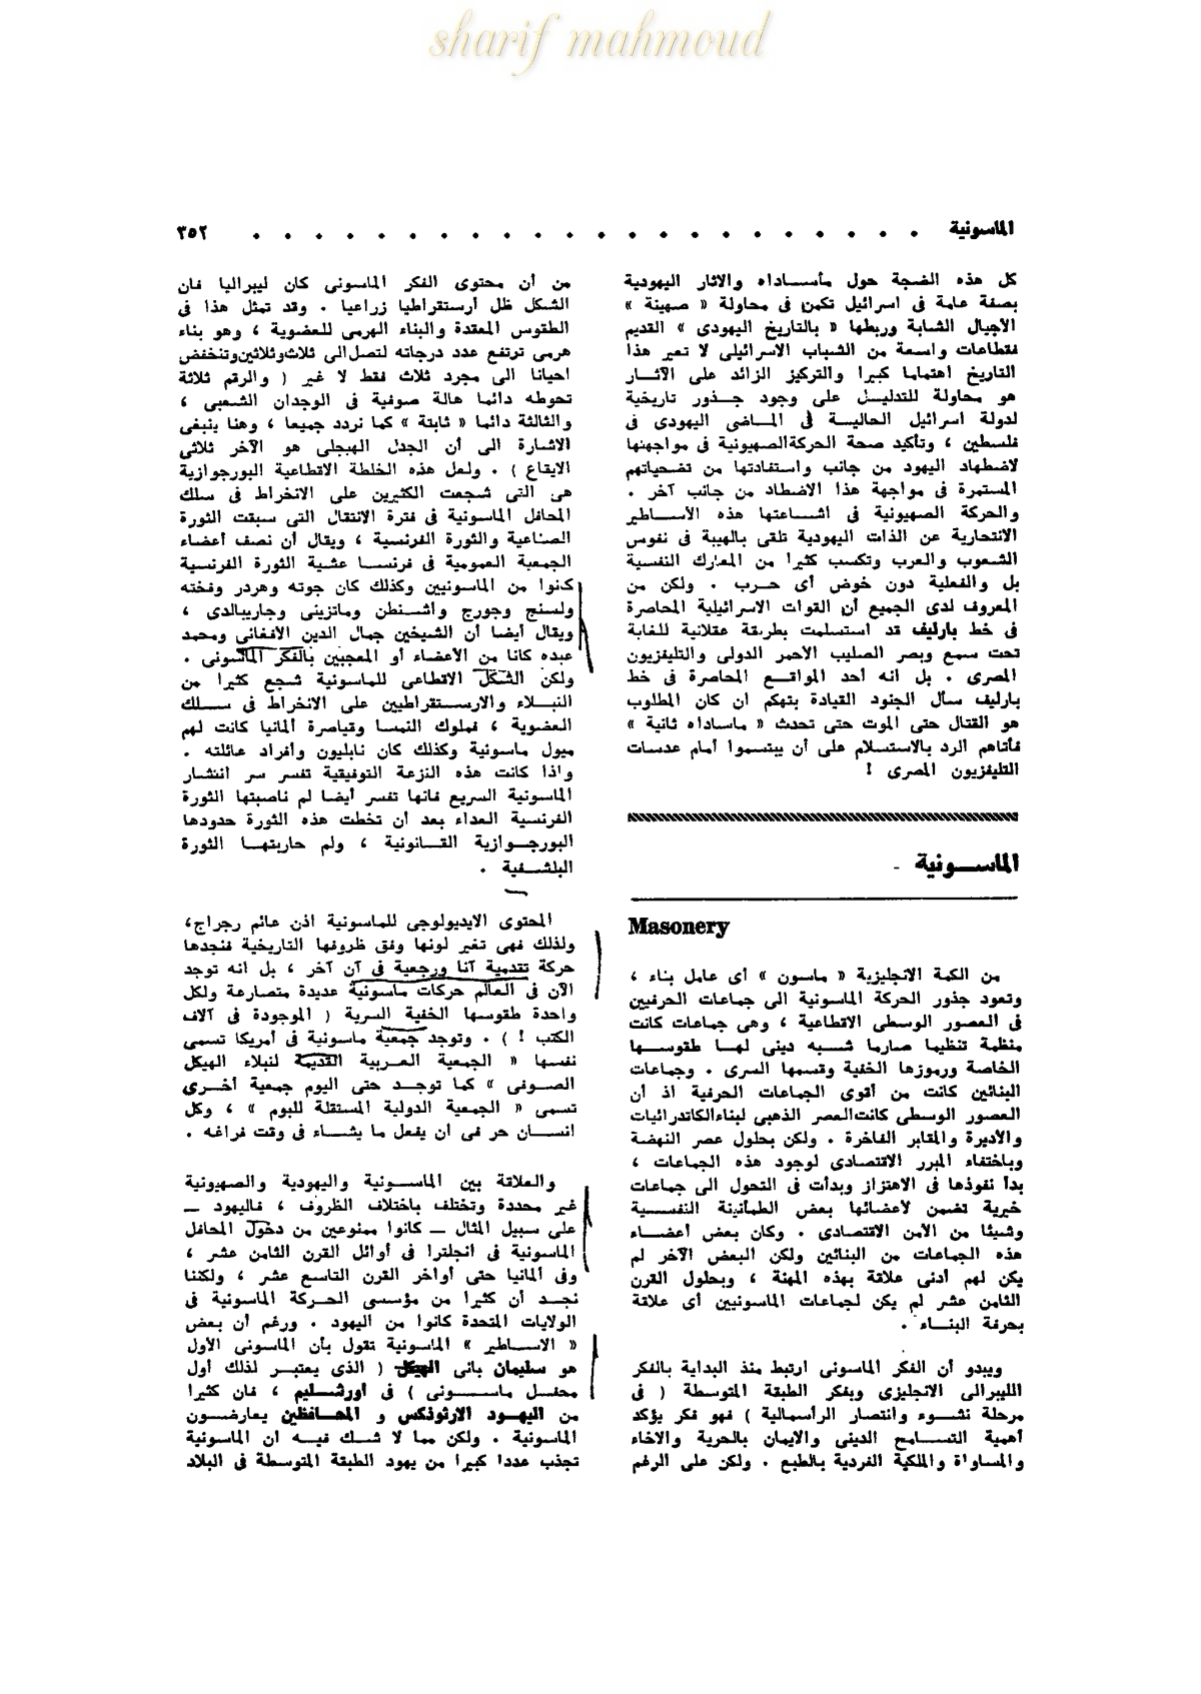 sharif mahmoud
الماسونية ٣٥٢
كل هذه الضجة حول مأسساداه والاثار اليهودية
بصفة عامة فى اسرائيل تكمن فى محاولة « صهينة »
الاجيال الشابة وربطها « بالتاريخ اليهودى » القديم
فقطاعات واسعة من الشباب الاسرائيلى لا تعير هذا
التاريخ اهتماما كبيرا والتركيز الزائد على الآثار
هو محاولة للتدليل على وجود جذور تاريخية
لدولة اسرائيل الحالية فى الماضى اليهودى فى
فلسطين ، وتأكيد صحة الحركة الصهيونية فى مواجهتها
لاضطهاد اليهود من جانب واستفادتها من تضحياتهم
المستمرة فى مواجهة هذا الاضطاد من جانب آخر .
والحركة الصهيونية فى اشاعتها هذه الأساطير
الانتحارية عن الذات اليهودية تلقى بالهيبة فى نفوس
الشعوب والعرب وتكسب كثيرا من المعارك النفسية
بل والفعلية دون خوض أى حرب . ولكن من
المعروف لدى الجميع أن القوات الاسرائيلية المحاصرة
فى خط بارليف قد استسلمت بطريقة عقلانية للغاية
تحت سمع وبصر الصليب الأحمر الدولى والتليفزيون
المصرى . بل انه أحد المواقع المحاصرة فى خط
بارليف سأل الجنود القيادة بتهكم ان كان المطلوب
هو القتال حتى الموت حتى تحدث « ماساداه ثانية »
فأتاهم الرد بالاستسلام على أن يبتسموا أمام عدسات
التليفزيون المصرى !
الماسونية
Masonery
من الكمة الانجليزية « ماسون » أى عامل بناء ،
وتعود جذور الحركة الماسونية الى جماعات الحرفيين
فى العصور الوسطى الاقطاعية ، وهى جماعات كانت
منظمة تنظيما صارما شبه دينى لها طقوسها
الخاصة ورموزها الخفية وقسمها السرى . وجماعات
البنائين كانت من أقوى الجماعات الحرفية اذ أن
العصور الوسطى كانت العصر الذهبى لبناء الكاتدرائيات
والأديرة والمقابر الفاخرة . ولكن بحلول عصر النهضة
وباختفاء المبرر الاقتصادى لوجود هذه الجماعات ،
بدأ نفوذها فى الاهتزاز وبدأت فى التحول الى جماعات
خيرية تضمن لأعضائها بعض الطمأنينة النفسية
وشيئا من الأمن الاقتصادى . وكان بعض أعضاء
هذه الجماعات من البنائين ولكن البعض الآخر لم
يكن لهم أدنى علاقة بهذه المهنة ، وبحلول القرن
الثامن عشر لم يكن لجماعات الماسونيين أى علاقة
بحرفة البناء .
ويبدو أن الفكر الماسونى ارتبط منذ البداية بالفكر
الليبرالى الانجليزى وبفكر الطبقة المتوسطة ( فى
مرحلة نشوء وانتصار الرأسمالية ) فهو فكر يؤكد
أهمية التسامح الدينى والايمان بالحرية والاخاء
والمساواة والملكية الفردية بالطبع . ولكن على الرغم
من أن محتوى الفكر الماسونى كان ليبراليا فان
الشكل ظل أرستقراطيا زراعيا . وقد تمثل هذا فى
الطقوس المعقدة والبناء الهرمى للعضوية ، وهو بناء
هرمى ترتفع عدد درجاته لتصل الى ثلاث وثلاثين وتنخفض
احيانا الى مجرد ثلاث فقط لا غير ( والرقم ثلاثة
تحوطه دائما هالة صوفية فى الوجدان الشعبى ،
والثالثة دائما « ثابتة » كما نردد جميعا ، وهنا ينبغى
الاشارة الى أن الجدل الهيجلى هو الآخر ثلاثى
الايقاع ) . ولعل هذه الخلطة الاقطاعية البورجوازية
هى التى شجعت الكثيرين على الانخراط فى سلك
المحافل الماسونية فى فترة الانتقال التى سبقت الثورة
الصناعية والثورة الفرنسية ، ويقال أن نصف أعضاء
الجمعية العمومية فى فرنسا عشية الثورة الفرنسية
كنوا من الماسونيين وكذلك كان جوته وهردر وفخته
ولسنج وجورج واشنطن وماتزينى وجاريبالدى ،
ويقال أيضا أن الشيخين جمال الدين الافغانى ومحمد
عبده كانا من الأعضاء أو المعجبين بالفكر الماسونى .
ولكن الشكل الاقطاعى للماسونية شجع كثيرا من
النبلاء والارستقراطيين على الانخراط فى سلك
العضوية ، فملوك النمسا وقياصرة ألمانيا كانت لهم
ميول ماسونية وكذلك كان نابليون وأفراد عائلته .
واذا كانت هذه النزعة التوفيقية تفسر سر انتشار
الماسونية السريع فانها تفسر أيضا لم ناصبتها الثورة
الفرنسية العداء بعد أن تخطت هذه الثورة حدودها
البورجوازية القانونية ، ولم حاربتها الثورة
البلشفية .
المحتوى الايديولوجى للماسونية اذن عائم رجراج،
ولذلك فهى تغير لونها وفق ظروفها التاريخية فنجدها
حركة تقدمية آنا ورجعية فى آن آخر ، بل انه توجد
الآن فى العالم حركات ماسونية عديدة متصارعة ولكل
واحدة طقوسها الخفية السرية ( الموجودة فى آلاف
الكتب ! ) . وتوجد جمعية ماسونية فى أمريكا تسمى
نفسها « الجمعية العربية القديمة لنبلاء الهيكل
الصوفى » كما توجد حتى اليوم جمعية أخرى
تسمى « الجمعية الدولية المستقلة للبوم » ، وكل
انسان حر فى أن يفعل ما يشاء فى وقت فراغه .
والعلاقة بين الماسونية واليهودية والصهيونية
غير محددة وتختلف باختلاف الظروف ، فاليهود —
على سبيل المثال — كانوا ممنوعين من دخول المحافل
الماسونية فى انجلترا فى أوائل القرن الثامن عشر ،
وفى ألمانيا حتى أواخر القرن التاسع عشر ، ولكننا
نجد أن كثيرا من مؤسسى الحركة الماسونية فى
الولايات المتحدة كانوا من اليهود . ورغم أن بعض
« الاساطير » الماسونية تقول بأن الماسونى الأول
هو سليمان بانى الهيكل ( الذى يعتبر لذلك أول
محفل ماسونى ) فى أورشليم ، فان كثيرا
من اليهود الارثوذكس و المحافظين يعارضون
الماسونية . ولكن مما لا شك فيه ان الماسونية
تجذب عددا كبيرا من يهود الطبقة المتوسطة فى البلاد